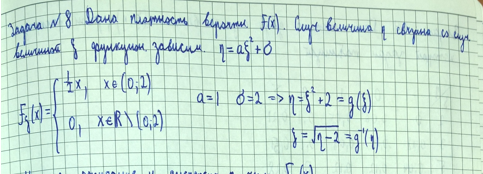 Задача №8 Дана плотность вероятн. f(x). Случ величина η связана со случ
величиной ξ функцион зависим. η=aξ²+b
f_ξ(x)= { ½x, x∈(0;2)
0, x∈R\(0;2)
a=1 b=2 => η=ξ²+2=g(ξ)
ξ=√η-2=g⁻¹(η)